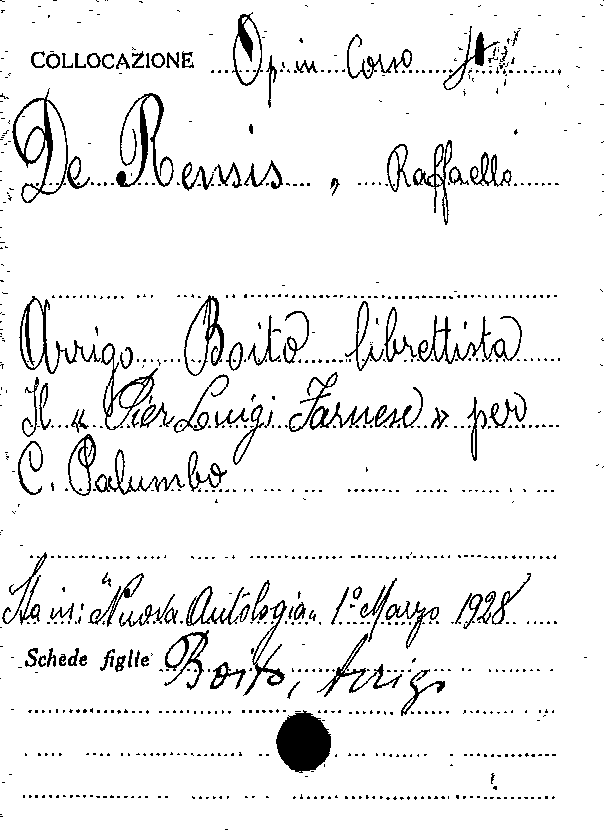 COLLOCAZIONE Op. in Corso
De Rensis, Raffaello
Arrigo Boito librettista
Il « Pier Luigi Farnese » per
C. Palumbo
Sta in: "Nuova Antologia" 1° Marzo 1928
Schede figlie Boito, Arrigo